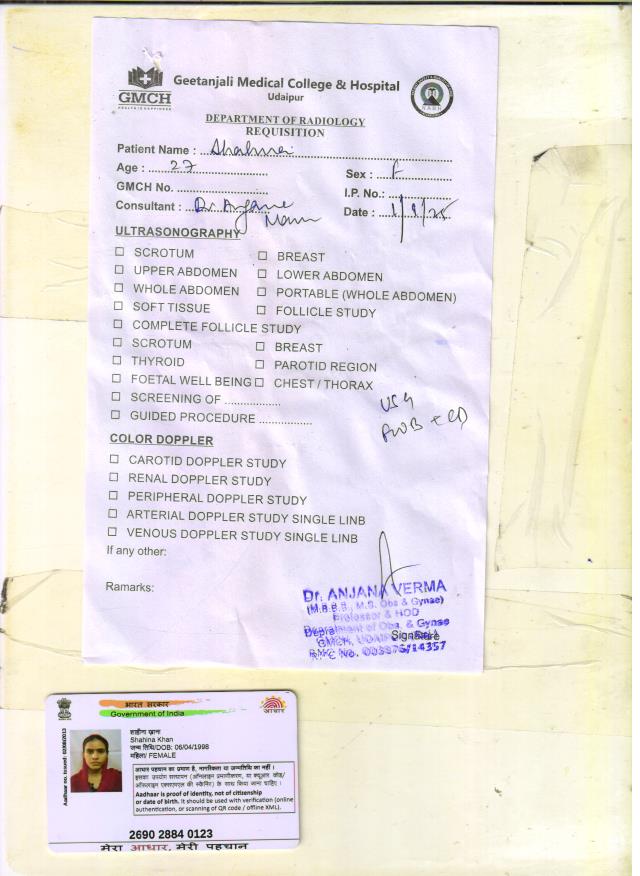 GMCH
Geetanjali Medical College & Hospital
Udaipur
DEPARTMENT OF RADIOLOGY
REQUISITION
Patient Name :
Age : 27 Sex : F
GMCH No. I.P. No.:
Consultant : Dr. Date : 1/9/25
ULTRASONOGRAPHY
SCROTUM BREAST
UPPER ABDOMEN LOWER ABDOMEN
WHOLE ABDOMEN PORTABLE (WHOLE ABDOMEN)
SOFT TISSUE FOLLICLE STUDY
COMPLETE FOLLICLE STUDY
SCROTUM BREAST
THYROID PAROTID REGION
FOETAL WELL BEING CHEST / THORAX
SCREENING OF
GUIDED PROCEDURE
USG
FWB + CD
COLOR DOPPLER
CAROTID DOPPLER STUDY
RENAL DOPPLER STUDY
PERIPHERAL DOPPLER STUDY
ARTERIAL DOPPLER STUDY SINGLE LINB
VENOUS DOPPLER STUDY SINGLE LINB
If any other:
Ramarks:
Dr. ANJANA VERMA
(M.B.B.S., M.S. Obs & Gynae)
Professor & HOD
Department of Obs. & Gynae
GMCH, UDAIPUR
Signature
R.M.C No. /14357
भारत सरकार
Government of India
आधार
Aadhaar no. issued: 02/08/2013
शाहीना खान
Shahina Khan
जन्म तिथि/DOB: 06/04/1998
महिला/ FEMALE
आधार पहचान का प्रमाण है, नागरिकता या जन्मतिथि का नहीं ।
इसका उपयोग सत्यापन (ऑनलाइन प्रमाणीकरण, या क्यूआर कोड/
ऑफलाइन एक्सएमएल की स्कैनिंग) के साथ किया जाना चाहिए ।
Aadhaar is proof of identity, not of citizenship
or date of birth. It should be used with verification (online
authentication, or scanning of QR code / offline XML).
2690 2884 0123
मेरा आधार, मेरी पहचान